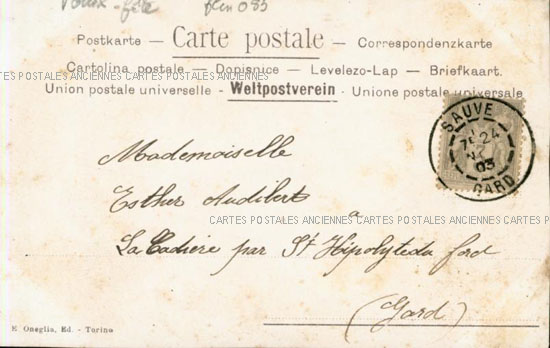 Postkarte — Carte postale — Correspondenzkarte
Cartolina postale — Dopisnice — Levelezo-Lap — Briefkaart.
CARTES POSTALES ANCIENNES CARTES POSTALES ANCIENNES CARTES POSTALES ANCIENNES CARTES POSTALES
Union postale universelle - Weltpostverein - Unione postale universale
SAUVE
24
03
GARD
Mademoiselle
Esther Audibert
CARTES POSTALES ANCIENNES CARTES POSTALES ANCIENNES CARTES POSTALES
à
La Cadière par St Hipolyte du ford
(Gard)
E. Oneglia, Ed. - Torino